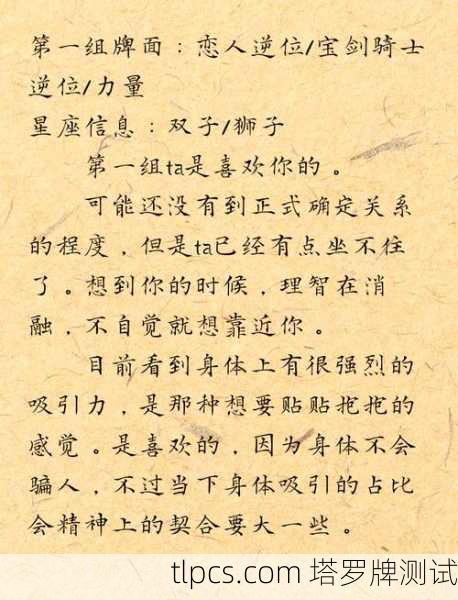 第一组牌面：恋人逆位/宝剑骑士
逆位/力量
星座信息：双子/狮子
第一组ta是喜欢你的。
可能还没有到正式确定关系
的程度，但是ta已经有点坐不住
了。想到你的时候，理智在消
融，不自觉就想靠近你。
目前看到身体上有很强烈的
吸引力，是那种想要贴贴抱抱的
感觉。是喜欢的，因为身体不会
骗人，不过当下身体吸引的占比
会精神上的契合要大一些。
tlpcs.com 塔罗牌测试